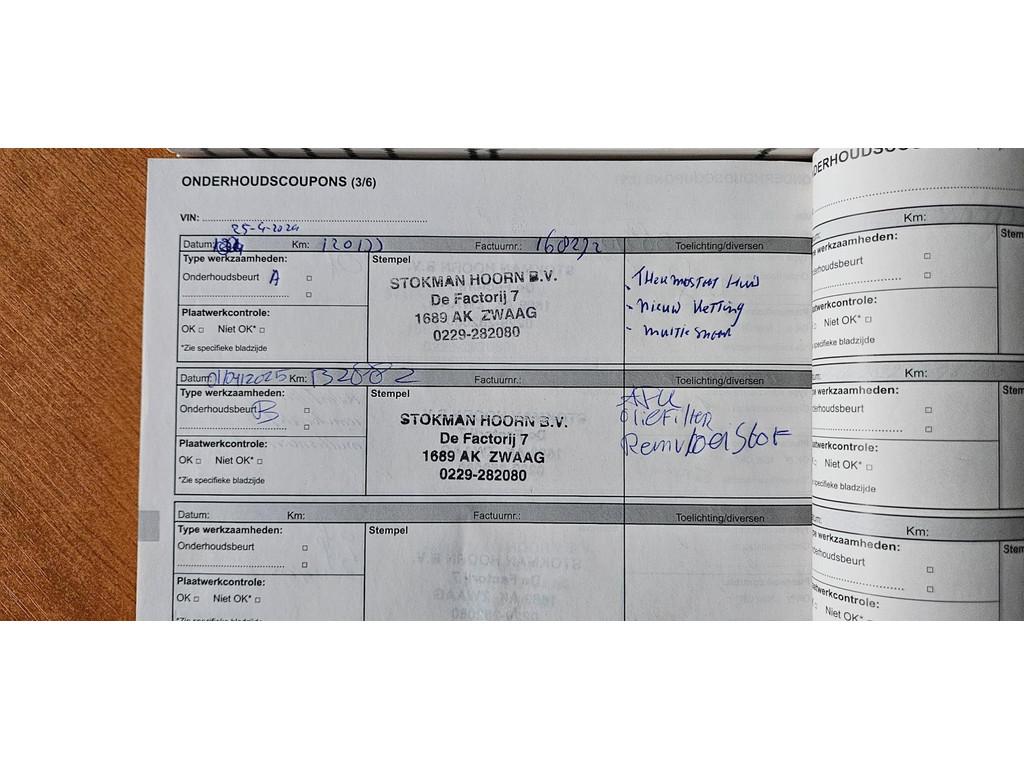 ONDERHOUDSCOUPONS (3/6)
VIN:
25-4-2024
Datum: Km: 120133 Factuurnr.: 160272 Toelichting/diversen
Type werkzaamheden: Stempel
Onderhoudsbeurt A
Plaatwerkcontrole:
OK Niet OK*
*Zie specifieke bladzijde
STOKMAN HOORN B.V.
De Factorij 7
1689 AK ZWAAG
0229-282080
- Thermostat Huis
- nieuw Ketting
- multisnaar
Datum: 01/04/2025 Km: 132882 Factuurnr.: Toelichting/diversen
Type werkzaamheden: Stempel
Onderhoudsbeurt B
Plaatwerkcontrole:
OK Niet OK*
*Zie specifieke bladzijde
STOKMAN HOORN B.V.
De Factorij 7
1689 AK ZWAAG
0229-282080
APK
OlieFilter
Remvloeistof
Datum: Km: Factuurnr.: Toelichting/diversen
Type werkzaamheden: Stempel
Onderhoudsbeurt
Plaatwerkcontrole:
OK Niet OK*
Km:
werkzaamheden: Stem
OK Niet OK*
specifieke bladzijde
Km:
werkzaamheden: Stem
Niet OK*
specifieke bladzijde
Km:
werkzaamheden: Stem
Niet OK*